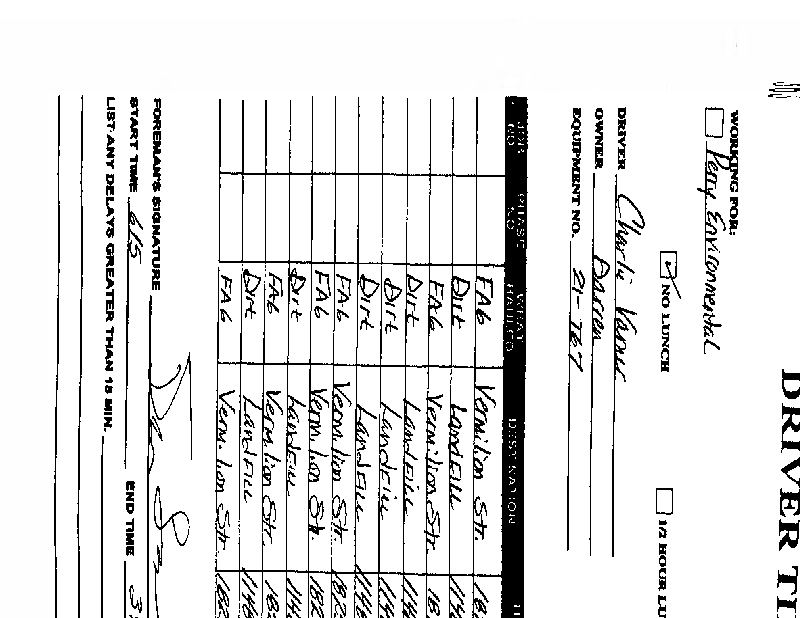 DRIVER TI
WORKING FOR:
Perry Environmental
NO LUNCH
1/2 HOUR LU
DRIVER Charlie
OWNER Darren
EQUIPMENT NO. 21-767
NO NO WHAT HAULED DESTINATION
FA6 Vermilion Str. 18
Dirt LandFill 114
FA6 Vermilion Str. 18
Dirt LandFill 114
Dirt LandFill 114
Dirt LandFill 1146
FA6 Vermilion Str. 182
FA6 Vermilion Str. 182
Dirt LandFill 114
FA6 Vermilion Str. 18
Dirt LandFill 1146
FA6 Vermilion Str. 182
FOREMAN'S SIGNATURE
START TIME 615 END TIME 3
LIST ANY DELAYS GREATER THAN 15 MIN.